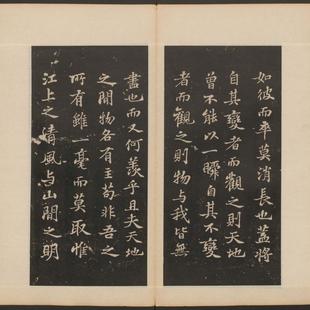 如彼而卒莫消長也蓋將
自其變者而觀之則天地
曾不能以一瞬自其不變
者而觀之則物与我皆無
盡也而又何羨乎且夫天地
之間物各有主苟非吾之
所有雖一毫而莫取惟
江上之清風与山間之明